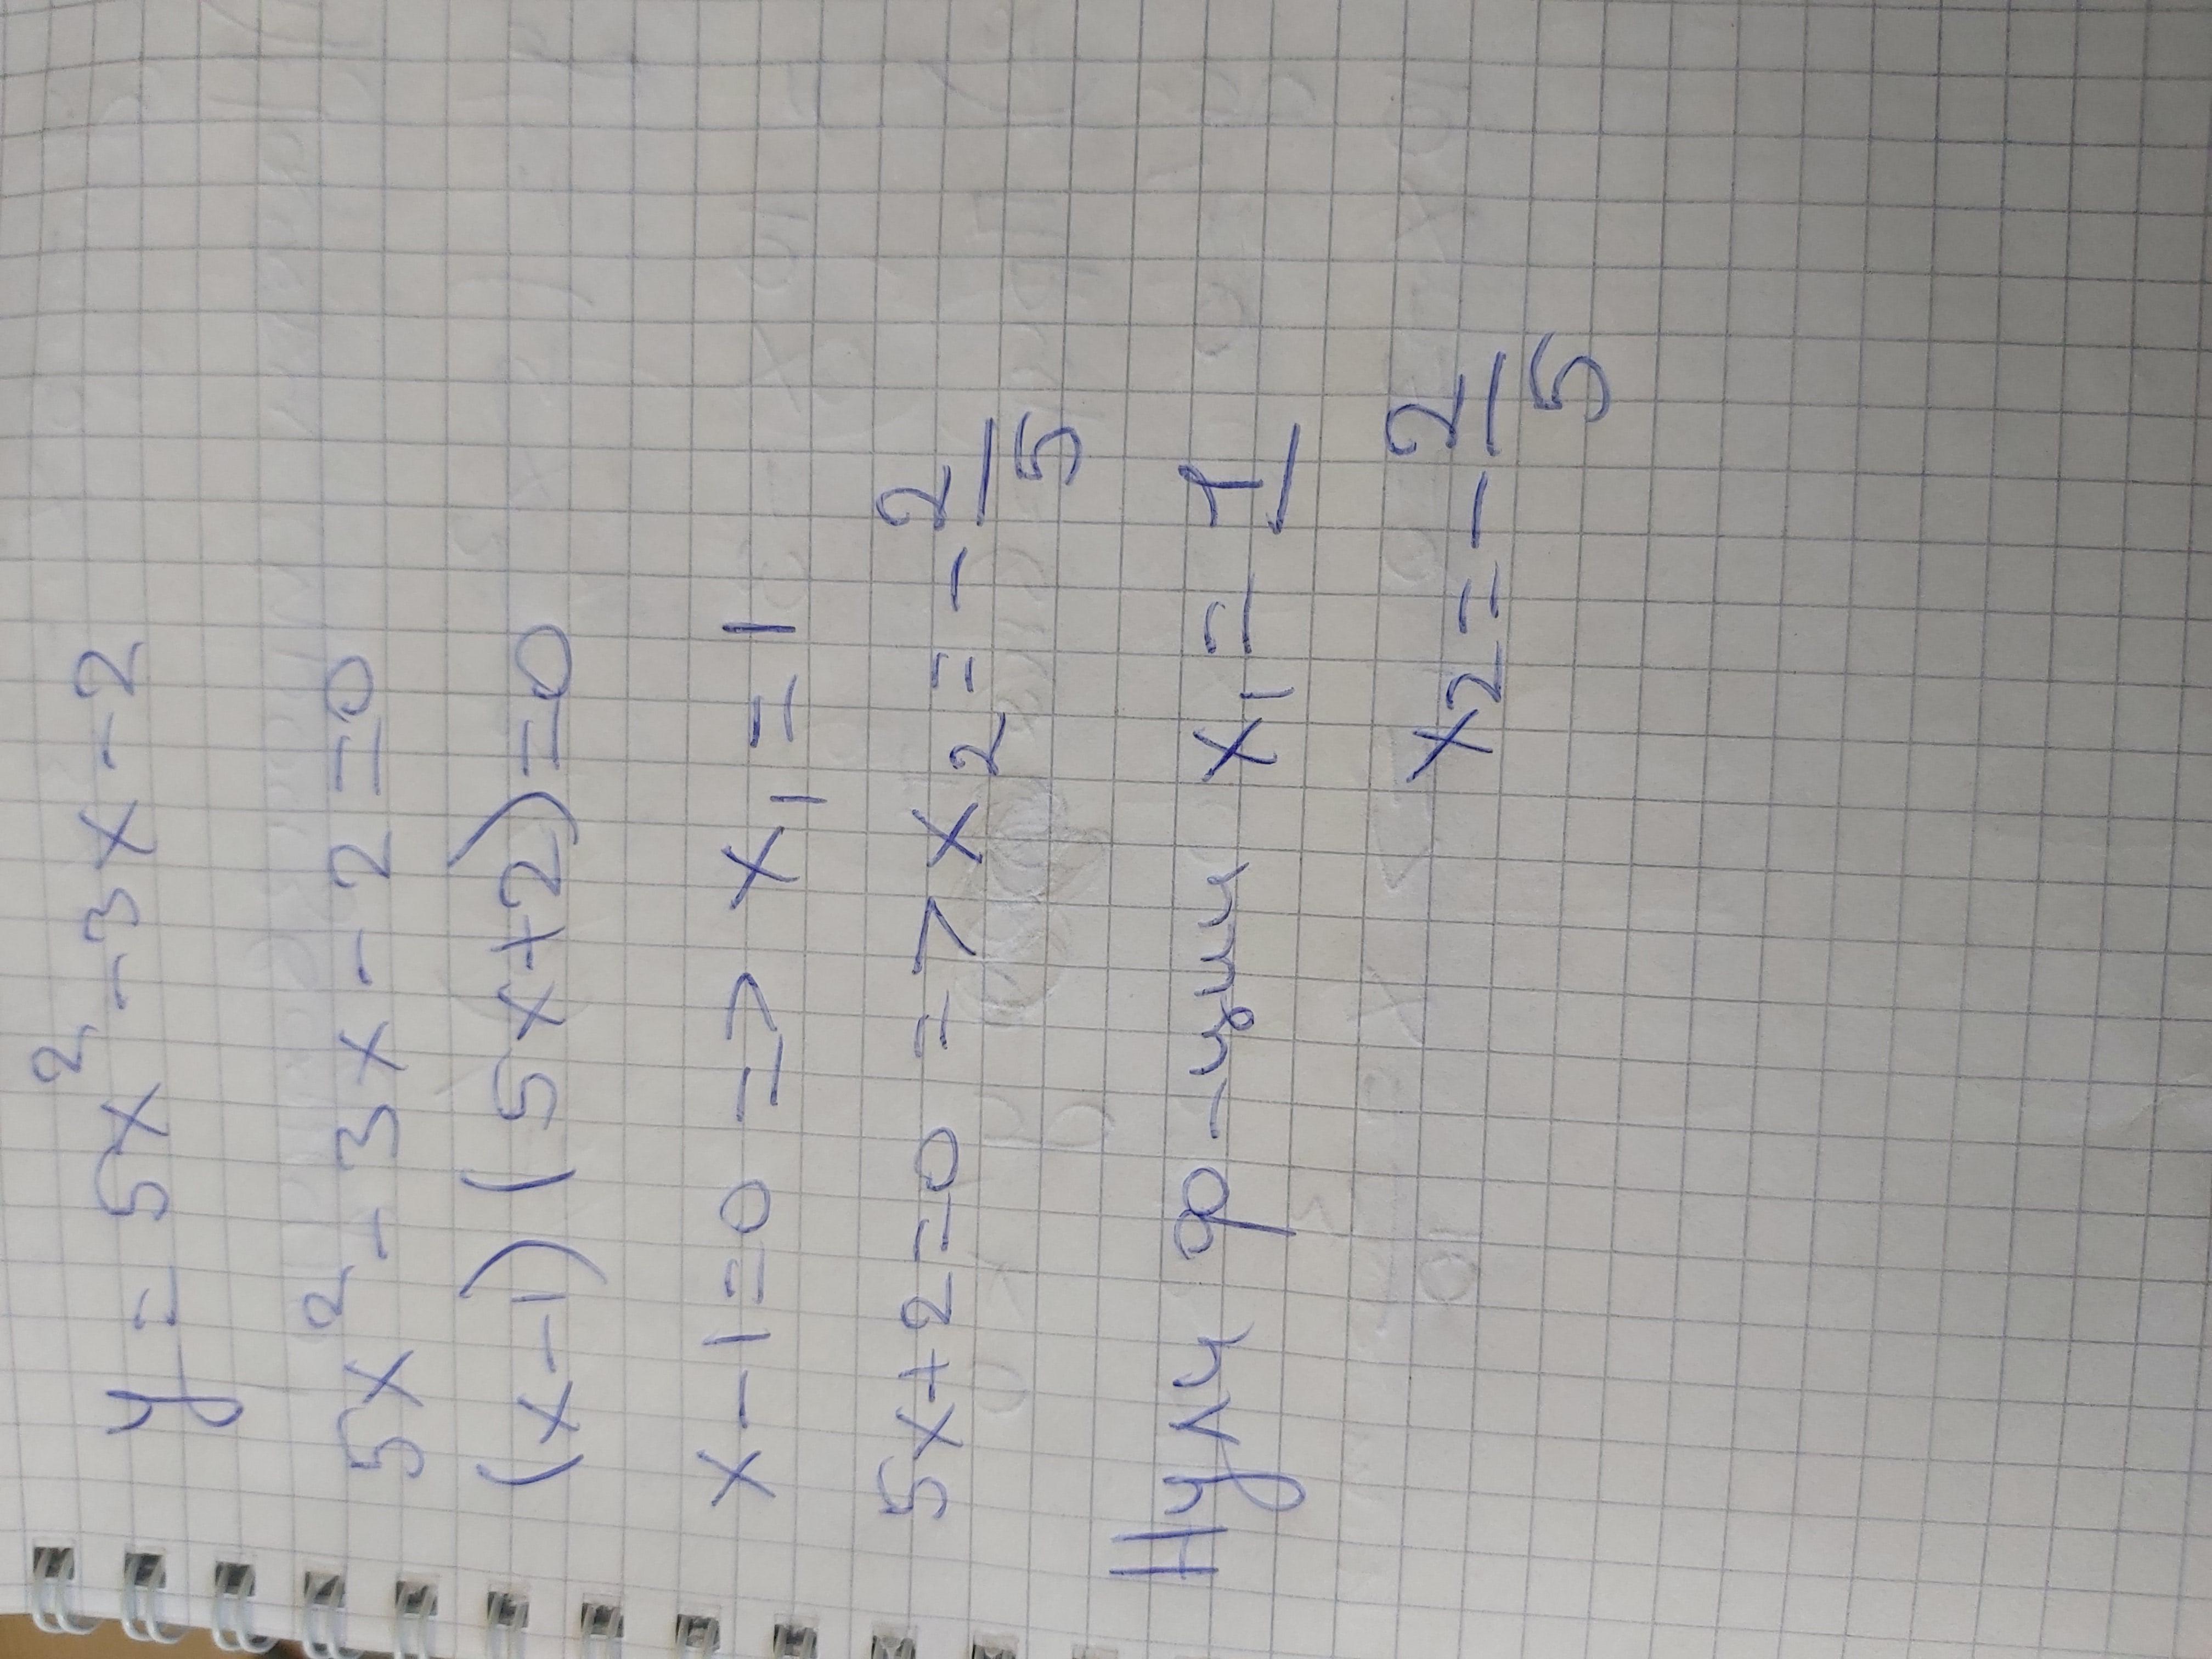 y = 5x² - 3x - 2
5x² - 3x - 2 = 0
(x-1)(5x+2)=0
x-1=0 => x₁ = 1
5x+2=0 => x₂ = -2/5
Нули ф-узии x₁ = 1
x₂ = -2/5